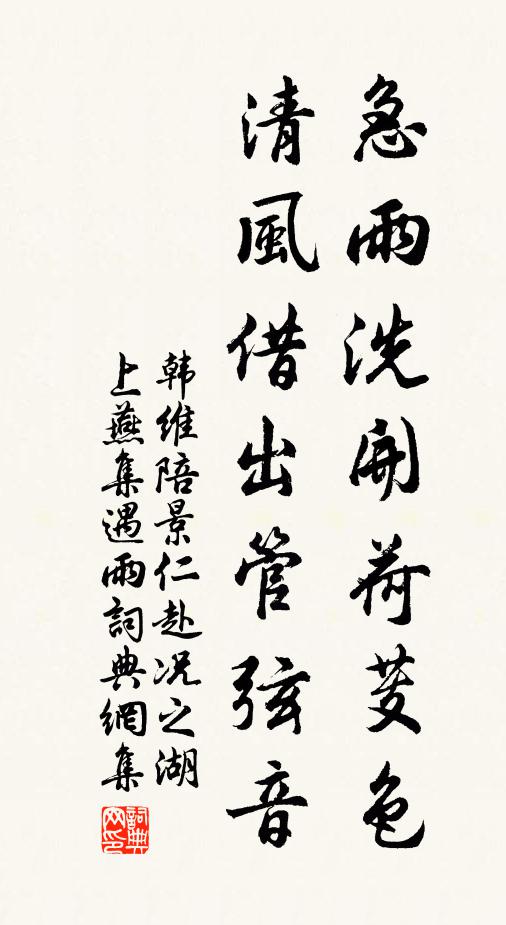 急雨洗開荷芰色
清風借出管弦音
韩維陪景仁赴况之湖
上燕集遇雨詞典網集
詞典
网印